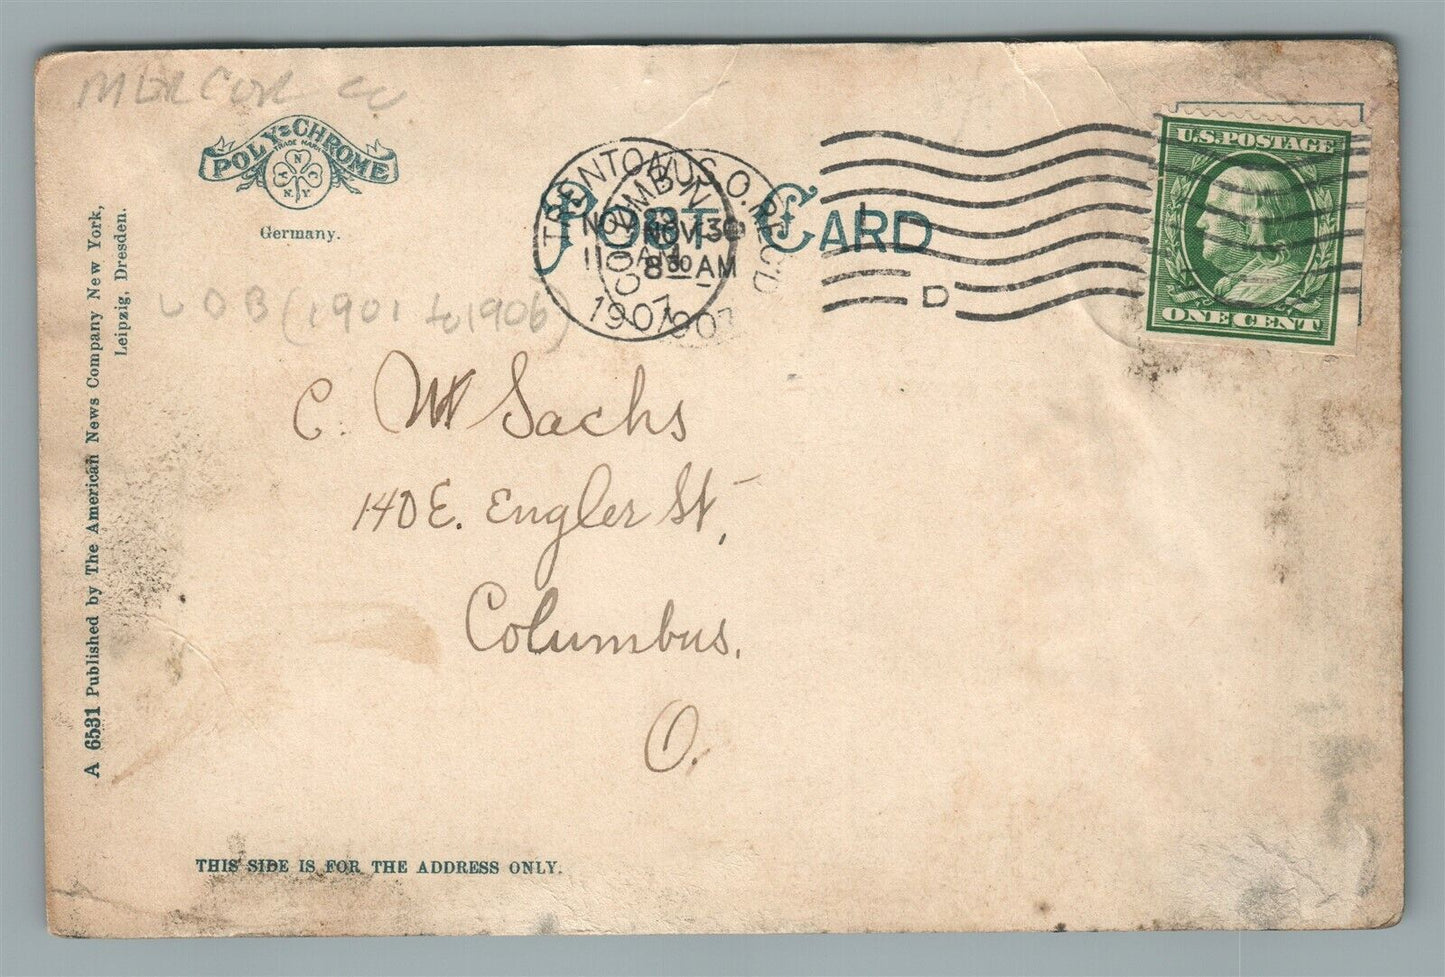 MERCER CO
POLY-CHROME
TRADE MARK
Germany.
UDB (1901 to 1906)
POST CARD
TRENTON
NOV
11 AM
1907
COLUMBUS, O. REC'D
NOV 30
8 30 AM
1907
D
U.S. POSTAGE
ONE CENT
C. W. Sachs
140 E. Engler St,
Columbus,
O.
A 6531 Published by The American News Company New York,
Leipzig, Dresden.
THIS SIDE IS FOR THE ADDRESS ONLY.